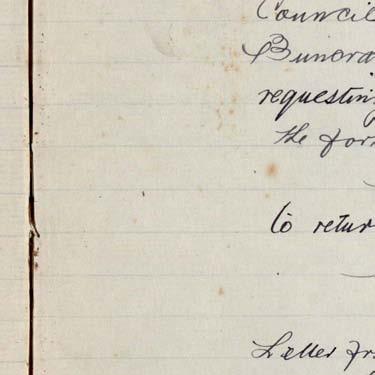 Council
Buncra
requesting
the for
to retur
Letter fr